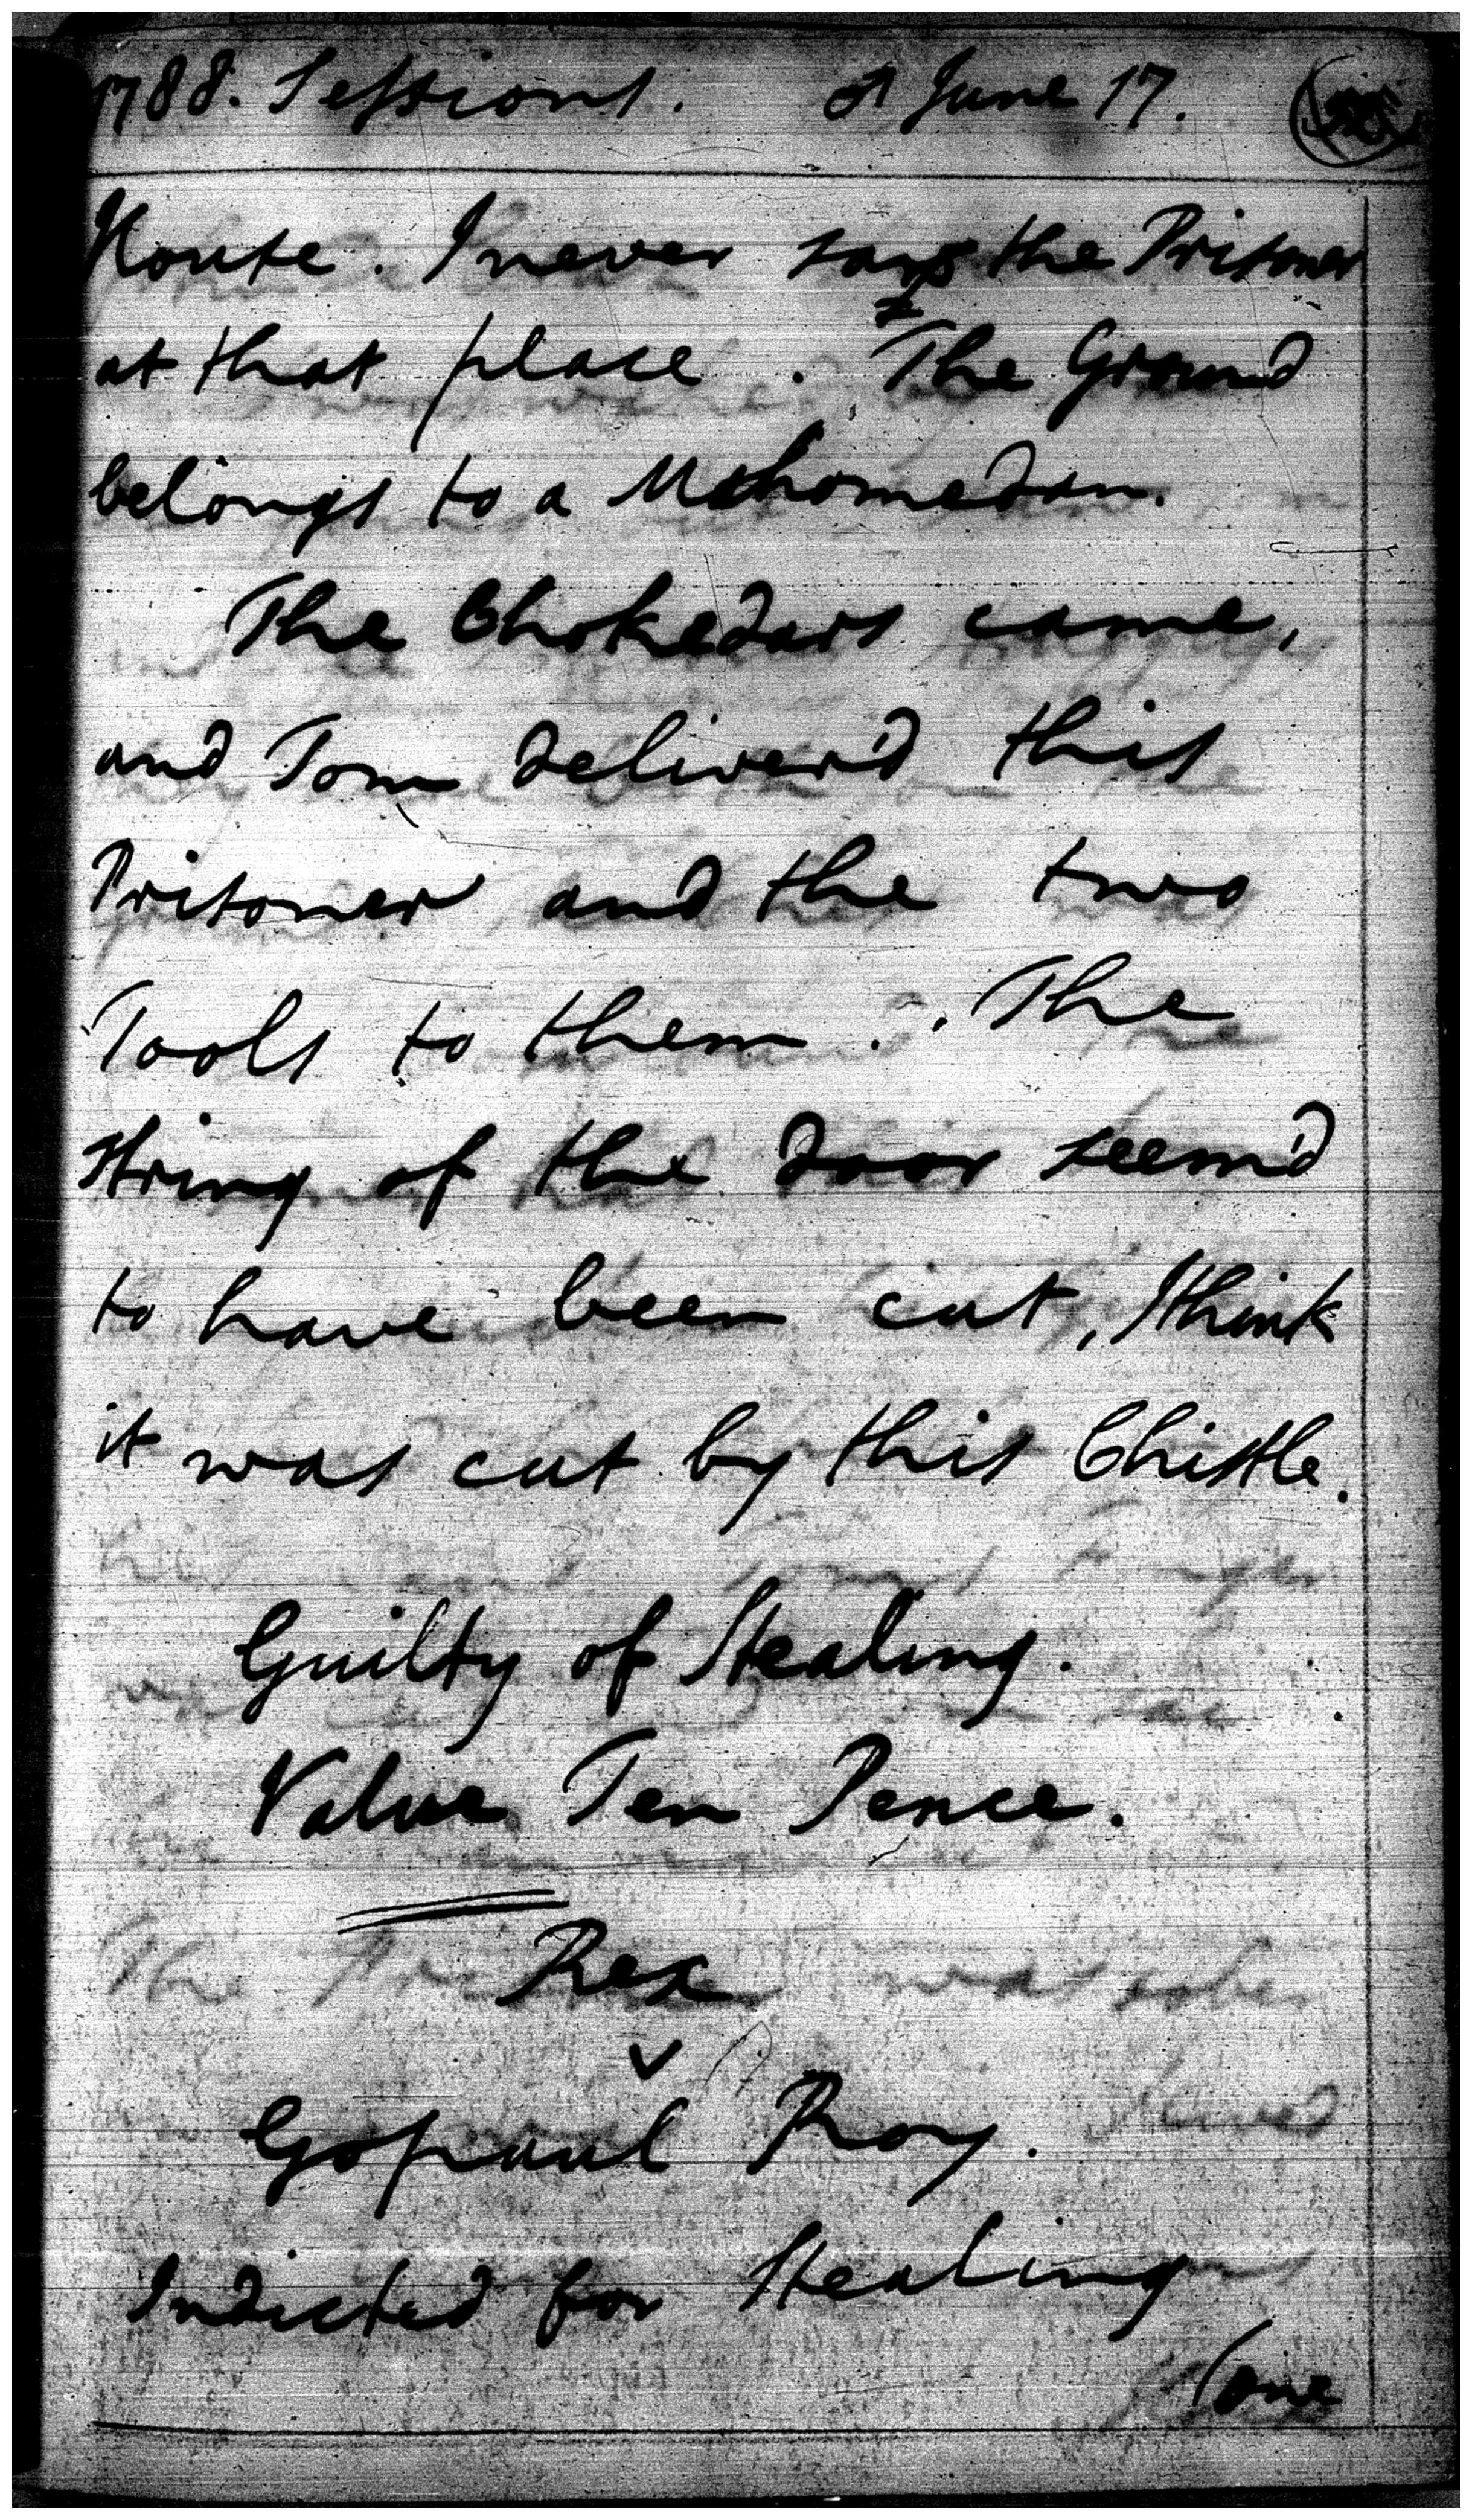 1788. Sessions. ♂ June 17.
House. I never saw the Prisoner
at that place. The Ground
belongs to a Mahomedan.
The Chokedars came,
and Tom deliver'd this
Prisoner and the two
Tools to them. The
string of the door seem'd
to have been cut, I think
it was cut by this Chistle.
Guilty of Stealing.
Value Ten Pence.
Rex
v
Gopaul Roy.
Indicted for Stealing
(one